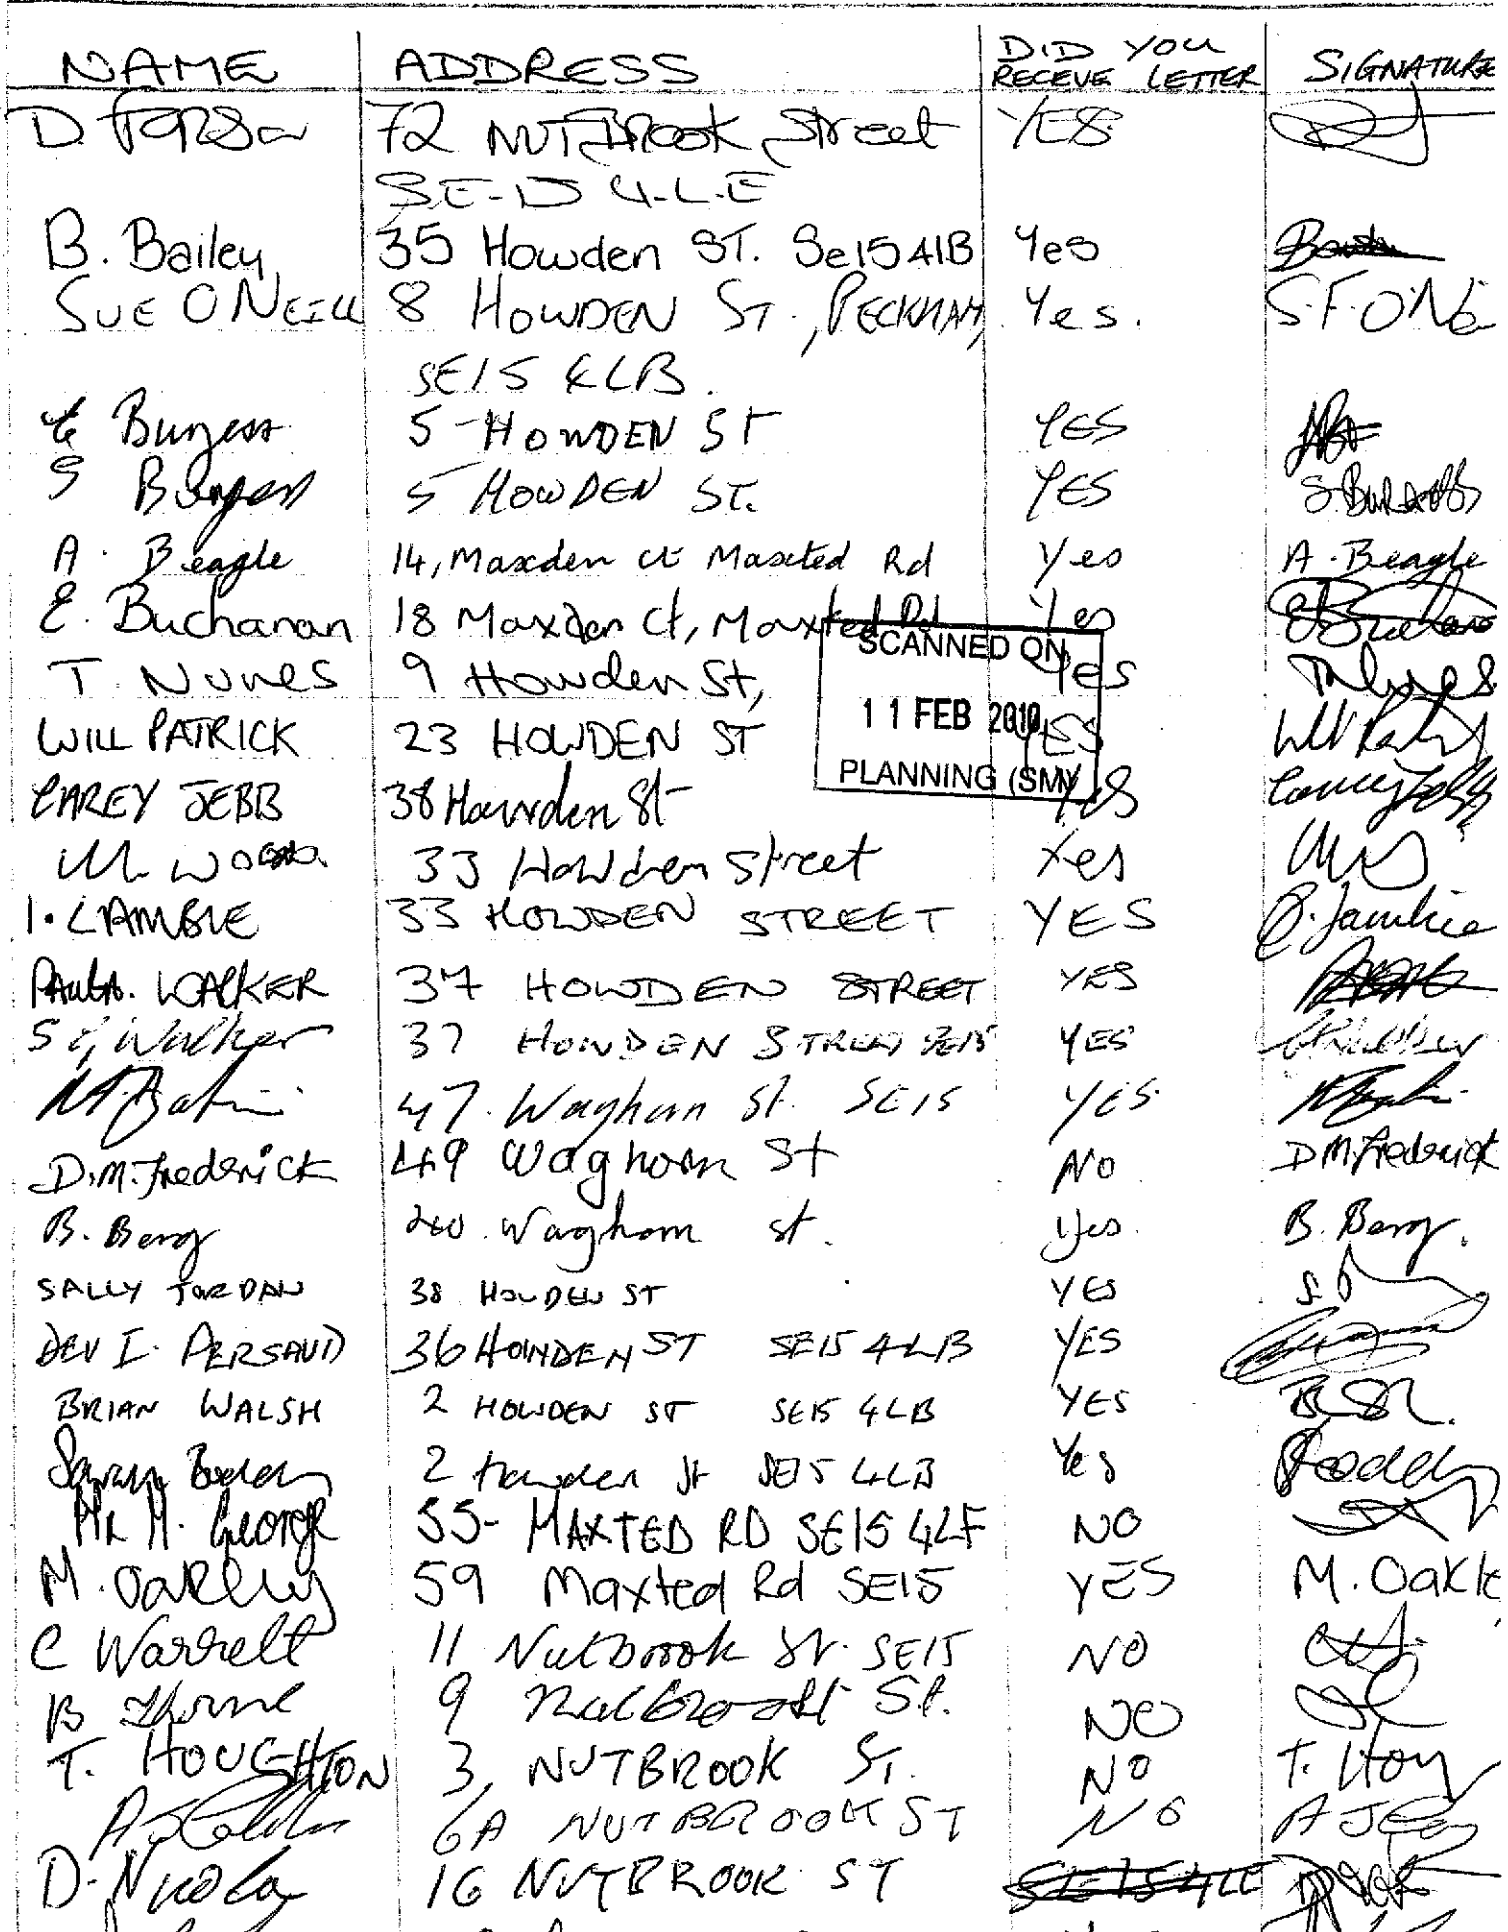 NAME ADDRESS DID YOU RECEVE LETTER SIGNATURE
D. 72 NUTBROOK Street YES
SE-15 4-L-E
B. Bailey 35 Howden ST. Se15 4lB Yes
SUE ONEILL 8 HOWDEN ST., PECKHAM, Yes. S.F.ONe
SE15 4LB.
Burgess 5 HOWDEN ST YES
S Burgess 5 HOWDEN ST. YES S BURGESS
A. Beagle 14, Maxden Ct Maxted Rd Yes A. Beagle
E. Buchanan 18 Maxden Ct, Maxted Rd Yes
SCANNED ON
T. Nunes 9 Howden St, Yes TNunes
11 FEB 2010
WILL PATRICK 23 HOWDEN ST YES Will Patrick
PLANNING (SM)
CAREY JEBB 38 Howden St Yes Carey Jebb
M. 33 Howden Street Yes
I. LAMBIE 33 HOWDEN STREET YES Lambie
PAULA. WALKER 37 HOWDEN STREET YES
S E Walker 37 HOWDEN STREET SE15 YES
47. Waghorn St. SE15 YES
D.M.Frederick 49 Waghorn St NO D M.Frederick
B. Berg 40 Waghorn St. Yes B. Berg.
SALLY JORDAN 38 HOWDEN ST YES
DEV I. PERSAUD 36 HOWDEN ST SE15 4LB YES
BRIAN WALSH 2 HOWDEN ST SE15 4LB YES
Sarah 2 Howden St SE15 4LB Yes
Mr M. George 55- MAXTED RD SE15 4LF NO
M. Oakley 59 Maxted Rd SE15 YES M. Oakle
C Warrelt 11 Nutbrook St. SE15 NO
B Thorne 9 Nutbrook St. NO
T. HOUGHTON 3, NUTBROOK ST. NO T. Hou
A J 6A NUTBROOK ST NO A J
D. Nicola 16 NUTBROOK ST SE15 4LE